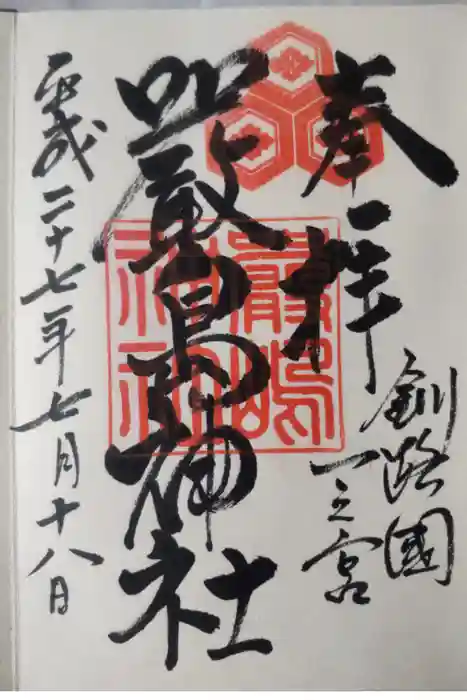 奉拝
釧路國
一之宮
厳島神社
嚴嶋神社
平成二十七年七月十八日